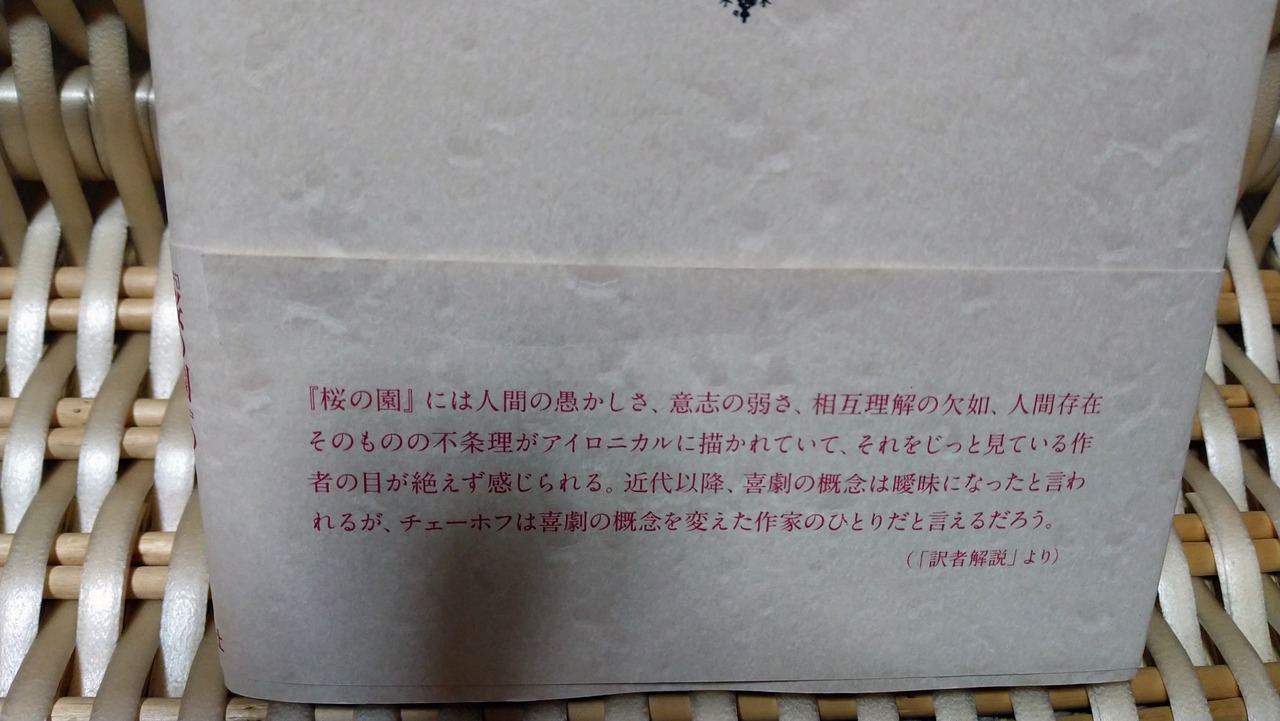 『桜の園』には人間の愚かしさ、意志の弱さ、相互理解の欠如、人間存在
そのものの不条理がアイロニカルに描かれていて、それをじっと見ている作
者の目が絶えず感じられる。近代以降、喜劇の概念は曖昧になったと言わ
れるが、チェーホフは喜劇の概念を変えた作家のひとりだと言えるだろう。
（「訳者解説」より）